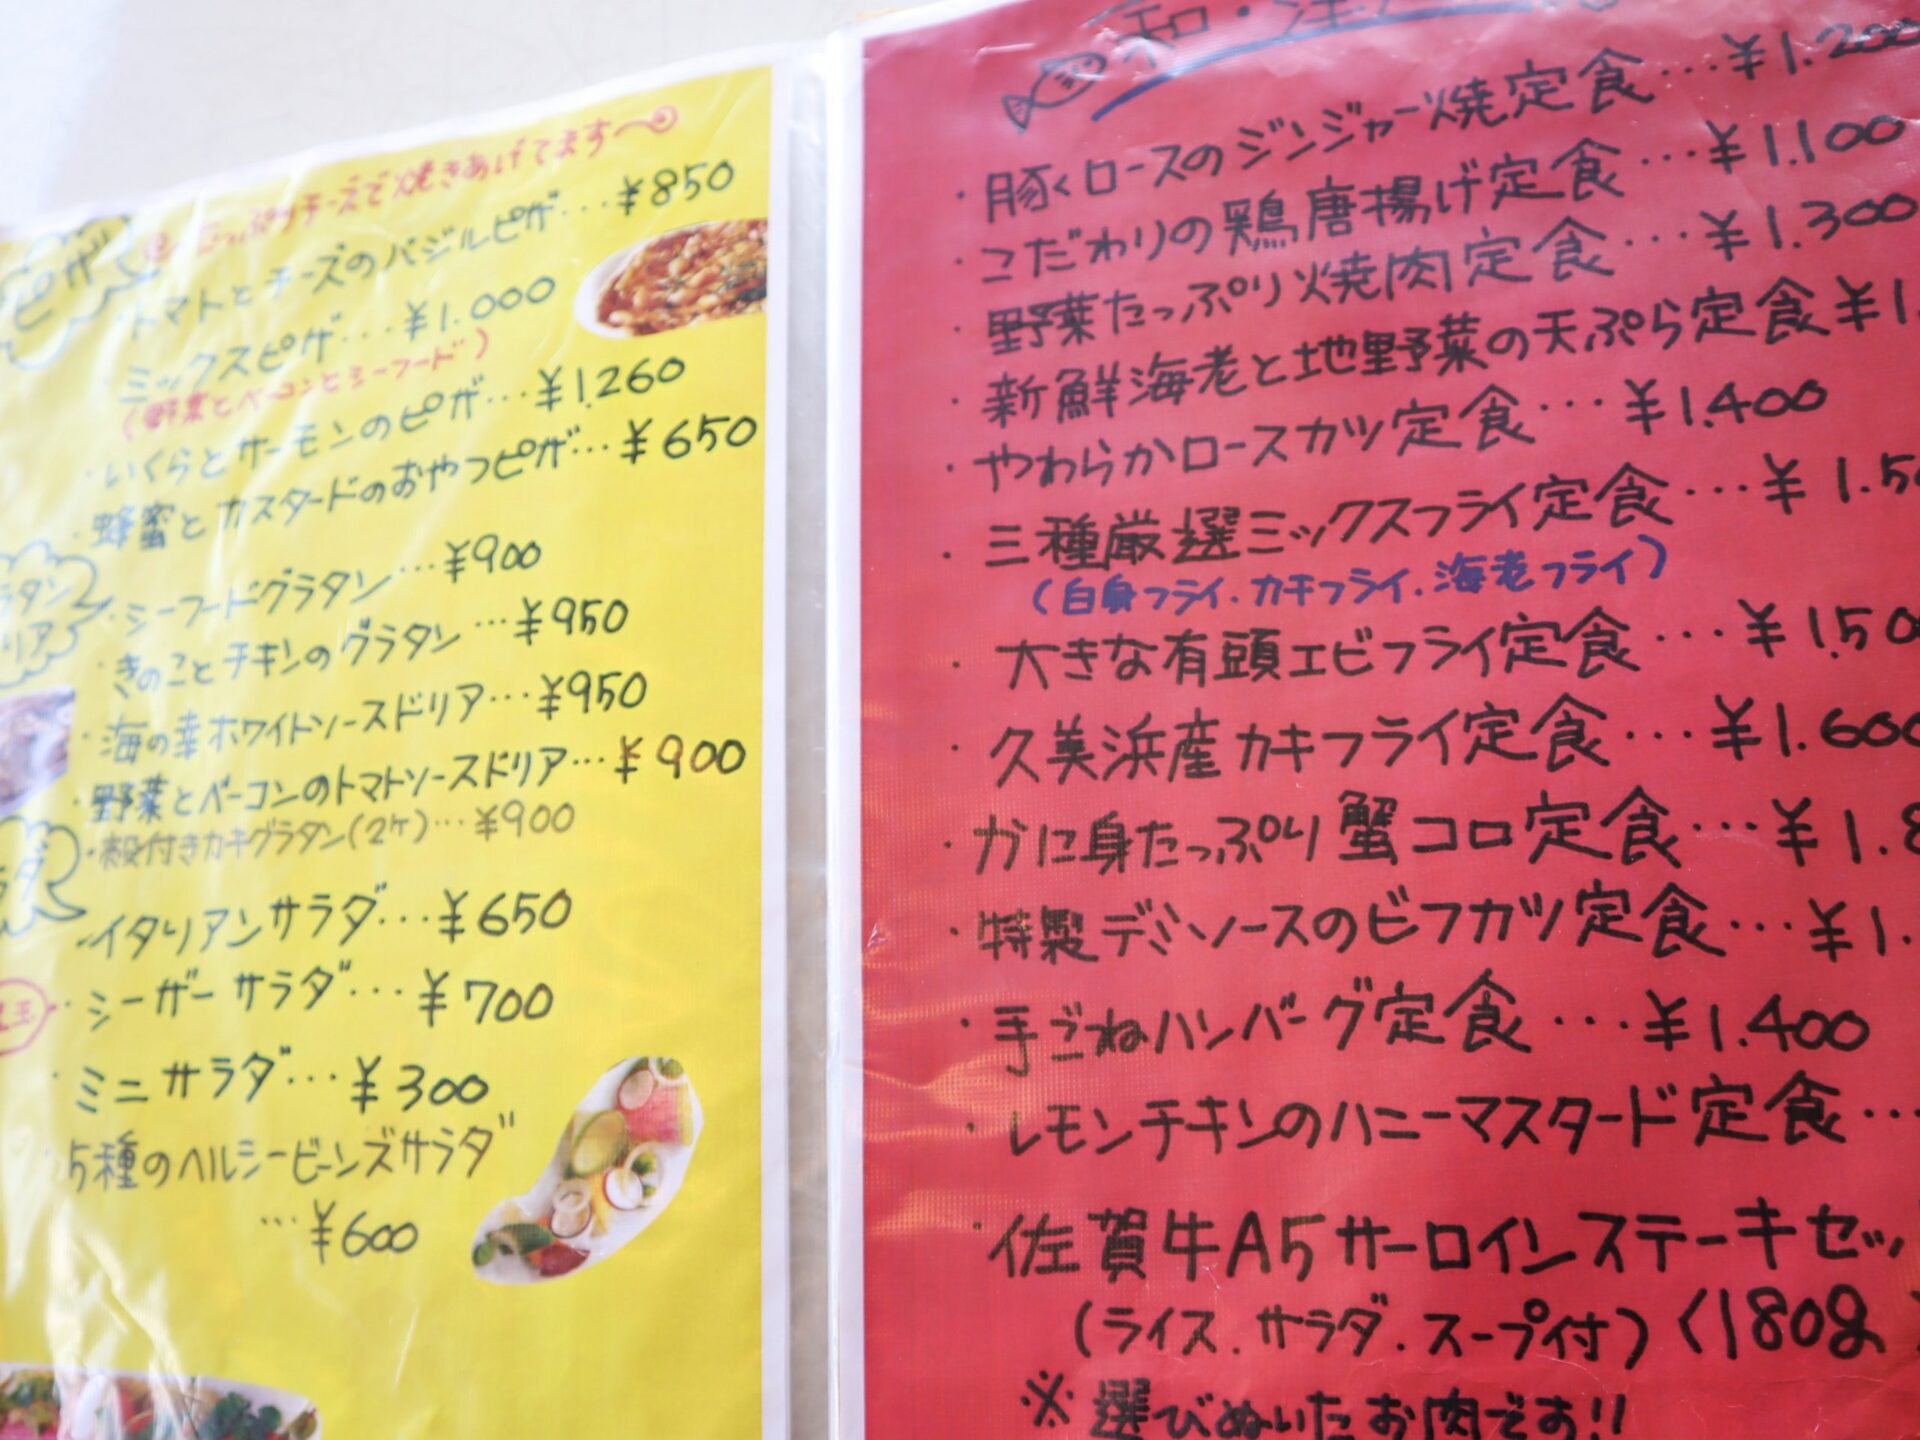 ピザ
たっぷりチーズで焼きあげてます〜
・トマトとチーズのバジルピザ…¥850
・ミックスピザ…¥1.000
(野菜とベーコンとシーフード)
・いくらとサーモンのピザ…¥1.260
・蜂蜜とカスタードのおやつピザ…¥650
・シーフードグラタン…¥900
・きのことチキンのグラタン…¥950
・海の幸ホワイトソースドリア…¥950
・野菜とベーコンのトマトソースドリア…¥900
・殻付きカキグラタン(2ケ)…¥900
・イタリアンサラダ…¥650
・シーザーサラダ…¥700
・ミニサラダ…¥300
・5種のヘルシービーンズサラダ
…¥600
和・洋
・豚くロースのジンジャー焼定食…¥1.200
・こだわりの鶏唐揚げ定食…¥1.100
・野菜たっぷり焼肉定食…¥1.300
・新鮮海老と地野菜の天ぷら定食¥1.
・やわらかロースカツ定食…¥1.400
・三種厳選ミックスフライ定食…¥1.50
(白身フライ.カキフライ.海老フライ)
・大きな有頭エビフライ定食…¥1.50
・久美浜産カキフライ定食…¥1.600
・かに身たっぷり蟹コロ定食…¥1.8
・特製デミソースのビフカツ定食…¥1.
・手ごねハンバーグ定食…¥1.400
・レモンチキンのハニーマスタード定食…
・佐賀牛A5サーロインステーキセッ
(ライス.サラダ.スープ付)〈180g〉
※選びぬいたお肉です!!